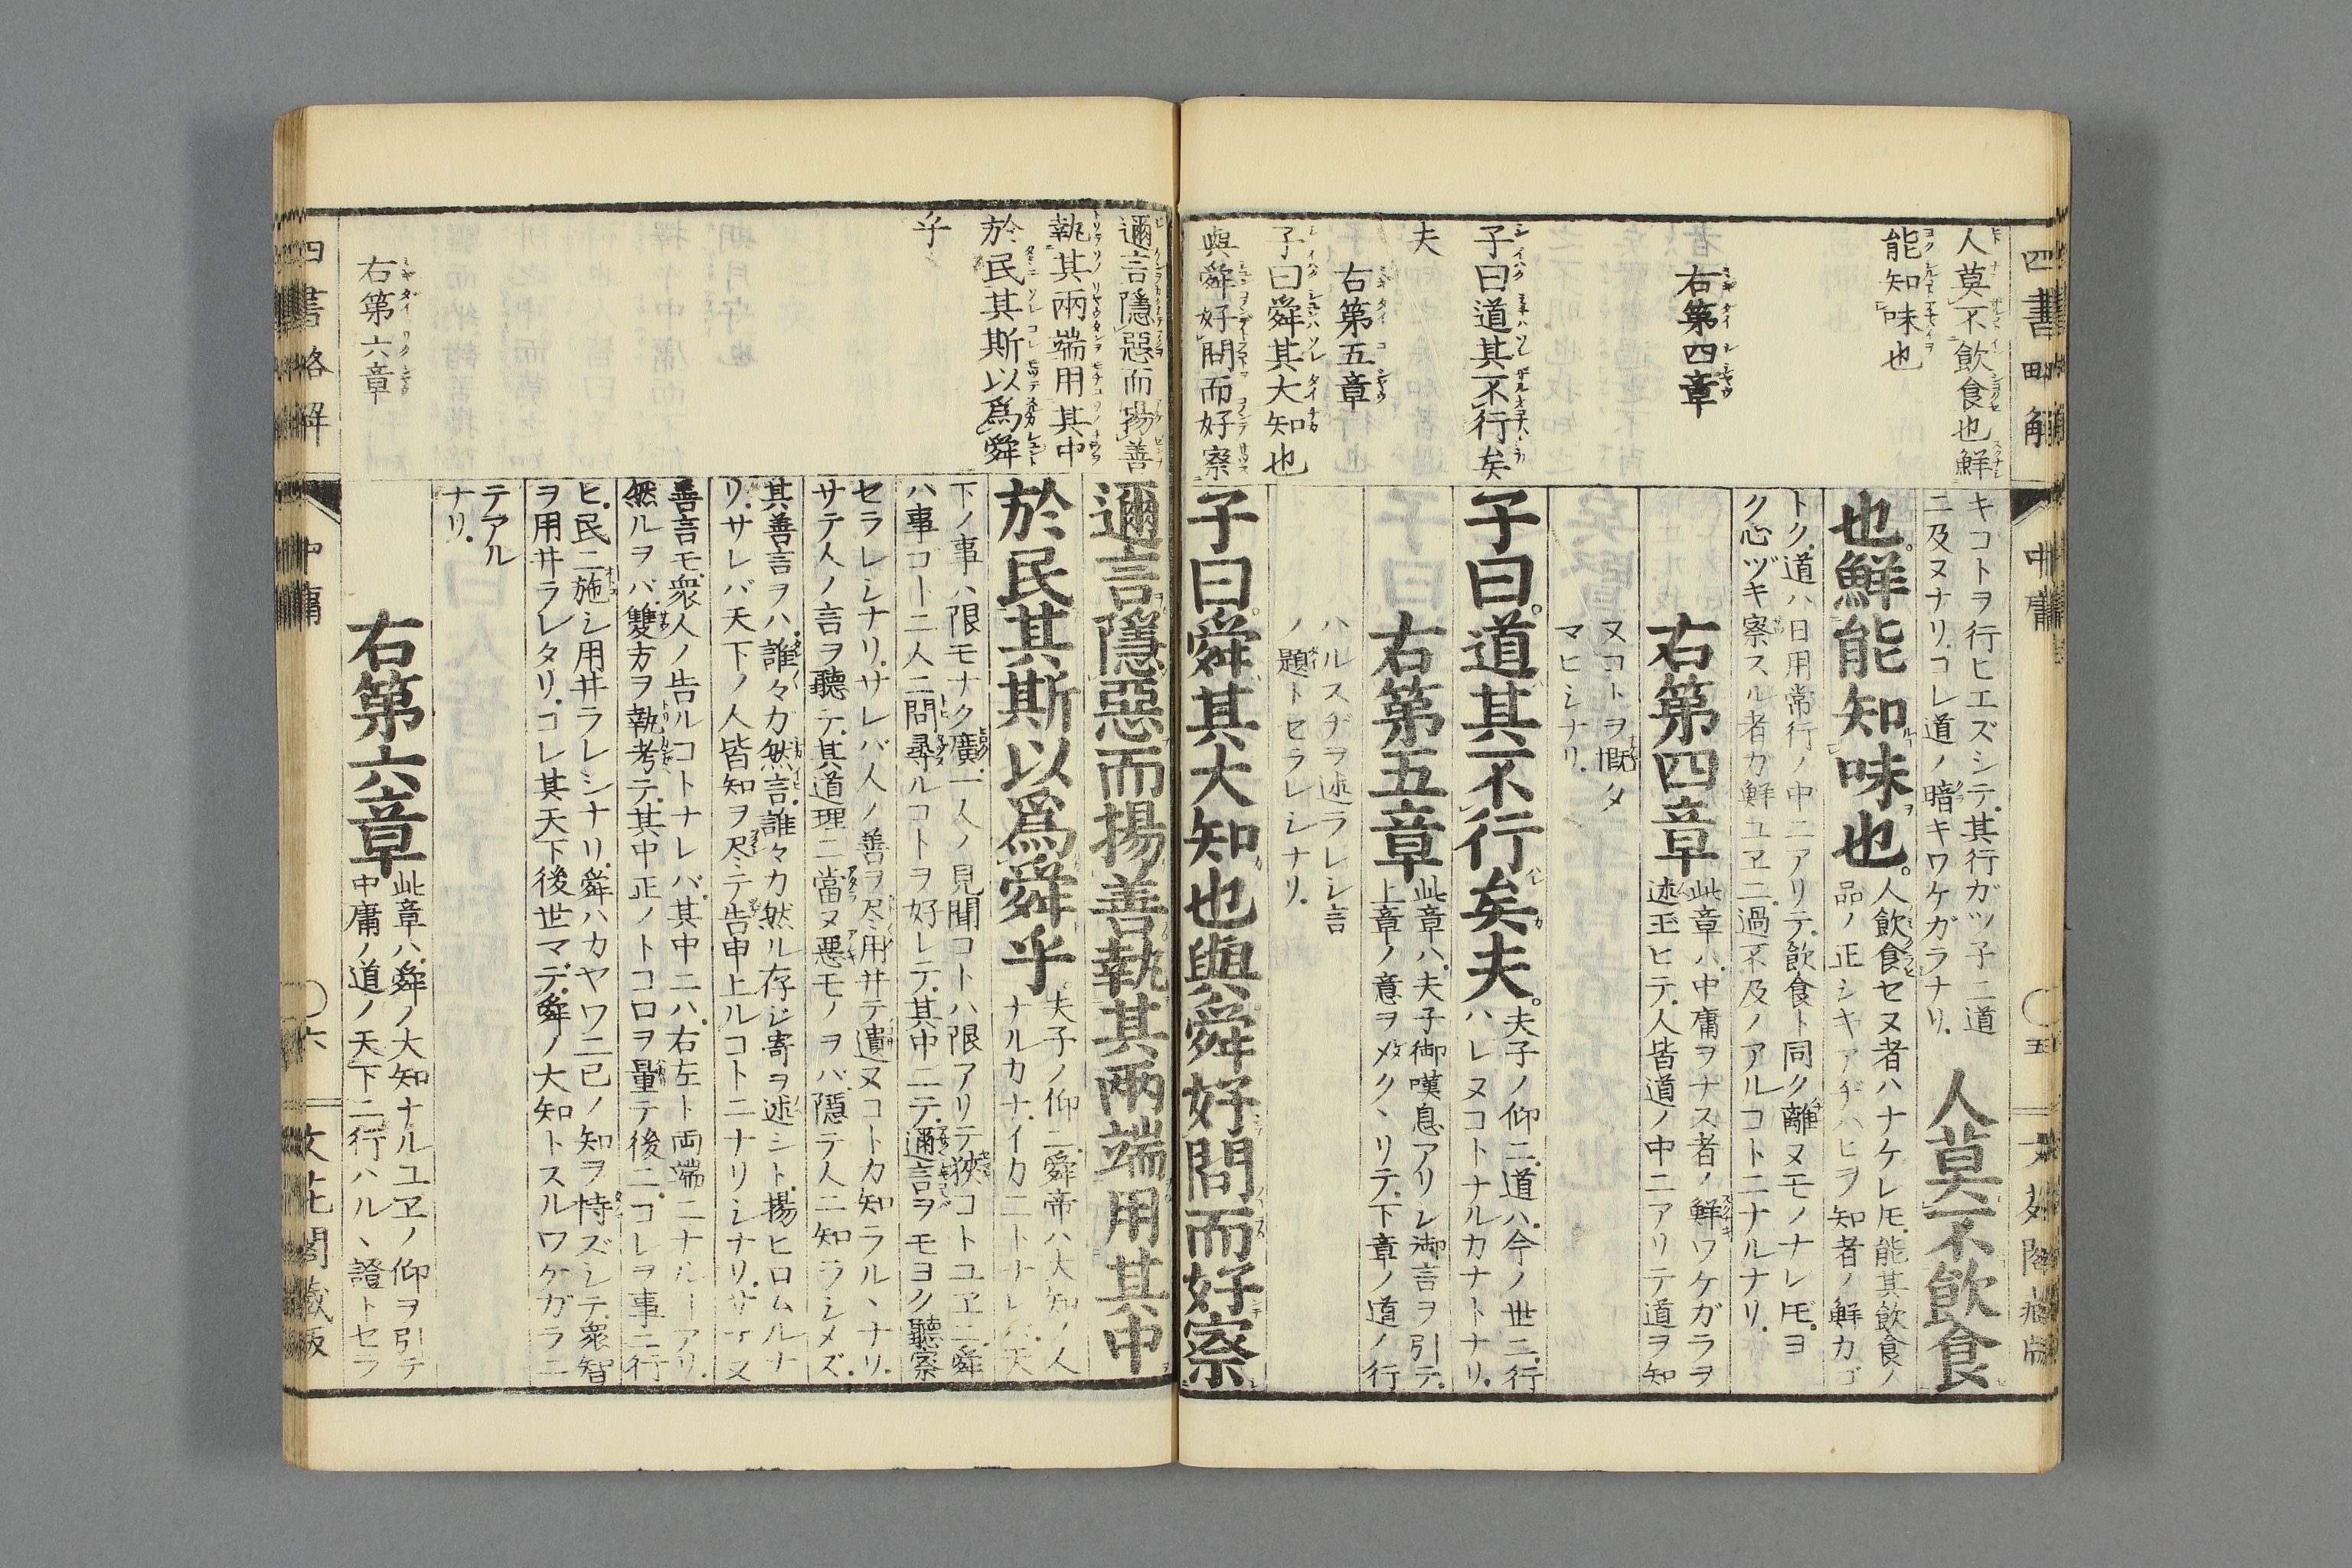 四書略解
中庸
五
人莫不飲食也鮮
能知味也
右第四章
子曰道其不行矣
夫
右第五章
子曰舜其大知也
與舜好問而好察
キコトヲ行ヒエズシテ其行ガツ子ニ道
ニ及ヌナリコレ道ノ暗キワケガラナリ
人莫不飲食
也鮮能知味也
人飲食セヌ者ハナケレ𪜈能其飲食ノ
品ノ正シキアヂハヒヲ知者ノ鮮カゴ
トク道ハ日用常行ノ中ニアリテ飲食ト同ク離ヌモノナレ𪜈ヨ
ク心ヅキ察スル者カ鮮ユヱニ過不及ノアルコトニナルナリ
右第四章
此章ハ中庸ヲナス者ノ鮮ワケガラヲ
述玉ヒテ人皆道ノ中ニアリテ道ヲ知
ヌコトヲ慨タ
マヒシナリ
子曰道其不行矣夫
夫子ノ仰ニ道ハ今ノ世ニ行
ハレヌコトナルカナトナリ
右第五章
此章ハ夫子御嘆息アリシ御言ヲ引テ
上章ノ意ヲメクヽリテ下章ノ道ノ行
ハルスヂヲ述ラレシ言
ノ題トセラレシナリ
子曰舜其大知也與舜好問而好察
邇言隱惡而揚善
執其兩端用其中
於民其斯以爲舜
乎
右第六章
邇言隱惡而揚善執其兩端用其中
於民其斯以爲舜乎
夫子ノ仰ニ舜帝ハ大知ノ人
ナルカナイカニトナレハ天
下ノ事ハ限モナク廣一人ノ見聞コトハ限アリテ狹コトユヱニ舜
ハ事ゴトニ人ニ問尋ルコトヲ好レテ其中ニテ邇言ヲモヨク聽察
セラレシナリサレバ人ノ善ヲ尽用井テ遺ヌコトカ知ラルヽナリ
サテ人ノ言ヲ聽テ其道理ニ當ヌ惡モノヲバ隱テ人ニ知ラシメズ
其善言ヲハ誰々カ然言誰々カ然ル存ジ寄ヲ述シト揚ヒロムルナ
リサレバ天下ノ人皆知ヲ尽シテ告申上ルコトニナリシナリサテ又
善言モ衆人ノ告ルコトナレバ其中ニハ右左ト両端ニナルーアリ
然ルヲバ雙方ヲ執考テ其中正ノトコロヲ量テ後ニコレヲ事ニ行
ヒ民ニ施シ用井ラレシナリ舜ハカヤウニ己ノ知ヲ恃ズシテ衆智
ヲ用井ラレタリコレ其天下後世マデ舜ノ大知トスルワケガラニ
テアル
ナリ
右第六章
此章ハ舜ノ大知ナルユヱノ仰ヲ引テ
中庸ノ道ノ天下ニ行ハルヽ證トセラ
四書略解
中庸
六
文花閣藏版